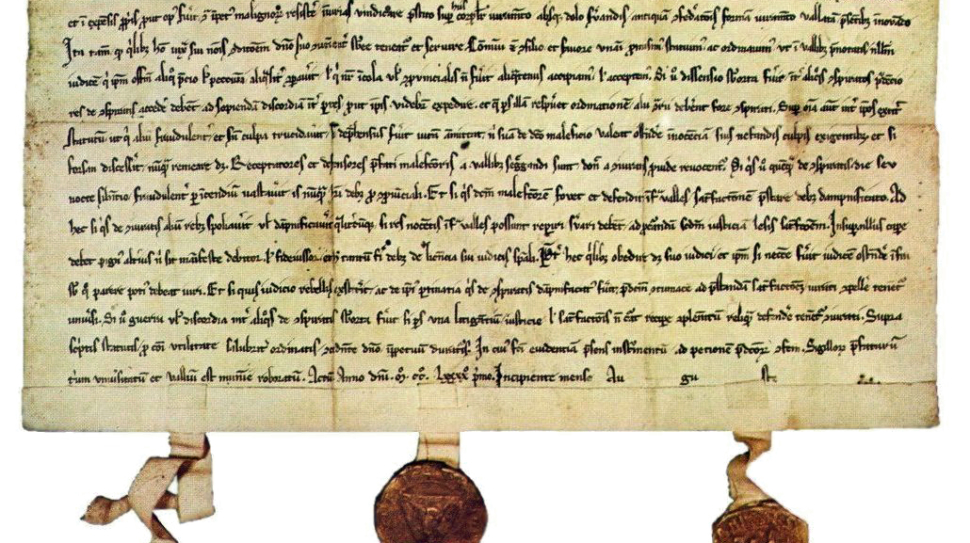 et i expensis ꝓpriis prout op fuit ut ipetu malignorum resistere iniurias vindicare prestito sup hiis corporaliter iuramento absq dolo servandis antiquam confederatonis formam iuramento vallatam presetib innovando
Ita tamen q quilibet homo iuxta sui nois conditoem domino suo convenienter subesse teneatur et servire Comuni etiam consilio et favore unanimi promisimus statuimus ac ordinavimus ut in vallibus prenotatis nullum
iudicem q ipsum officium aliquo precio vel peccunia aliqualiter comparaverit vel qui noster incola vel conprovincialis non fuerit aliquatenus accipiamus vel acceptemus Si vero dissensio suborta fuerit inter aliquos conspiratos prudenciores
de conspiratis accedere debent ad sopiendam discordiam inter partes prout ipsis videbitur expedire et que pars illam respueret ordinationem alii contrarii deberent fore conspirati Super omnia autem inter ipsos extitit
statutum ut qui alium fraudulenter et sine culpa trucidaverit si deprehensus fuerit vitam ammittat nisi suam de dicto maleficio valeat ostendere innocenciam suis nefandis culpis exigentibus et si
forsan discesserit nunquam remeare debet Receptatores et defensores prefati malefactoris a vallibus segregandi sunt donec a coniuratis provide revocentur Si quis vero quemquam de conspiratis die seu
nocte silentio fraudulenter per incendium vastaverit is nunquam haberi debet pro conprovinciali Et si quis dictum malefactorem fovet et defendit infra valles satisfactionem prestare debet dampnificato Ad
hec si quis de coniuratis alium rebus spoliaverit vel dampnificaverit qualitercumque si res nocentis infra valles possunt reperiri servari debent ad procurandam secundum iusticiam lesis satisfactionem Insuper nullus capere
debet pignus alterius nisi sit manifeste debitor vel fideiussor et hoc tantum fieri debet de licencia sui iudicis speciali Preter hec quilibet obedire debet suo iudici et ipsum si necesse fuerit iudicem ostendere infra
sub quo parere potius debeat iuri Et si quis iudicio rebellis exstiterit ac de ipsius pertinatia quis de conspiratis dampnificatus fuerit predictum contumacem ad prestandam satisfactionem iurati conpellere tenentur
universi Si vero guerra vel discordia inter aliquos de conspiratis suborta fuerit si pars una litigantium iusticie vel satisfactionis non curat recipere complementum reliquam defendere tenentur coniurati Supra
scriptis statutis pro communi utilitate salubriter ordinatis concedente domino in perpetuum duraturis In cuius facti evidentiam presens instrumentum ad petitionem predictorum confectum Sigillorum prefatarum
trium universitatum et vallium est munimine roboratum Actum Anno dni M CC LXXXX primo Incipiente mense Au gu sto